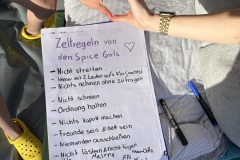 Zeltregeln von
den Spice Girls
- Nicht streiten
- Immer mit 2 Leuten aufs Klo
- Nichts nehmen ohne zu fragen
- Nicht schreien
- Ordnung halten
- Nichts kaputt machen
- Freunde sein
- Niemanden ausschließen
- Nicht lästern